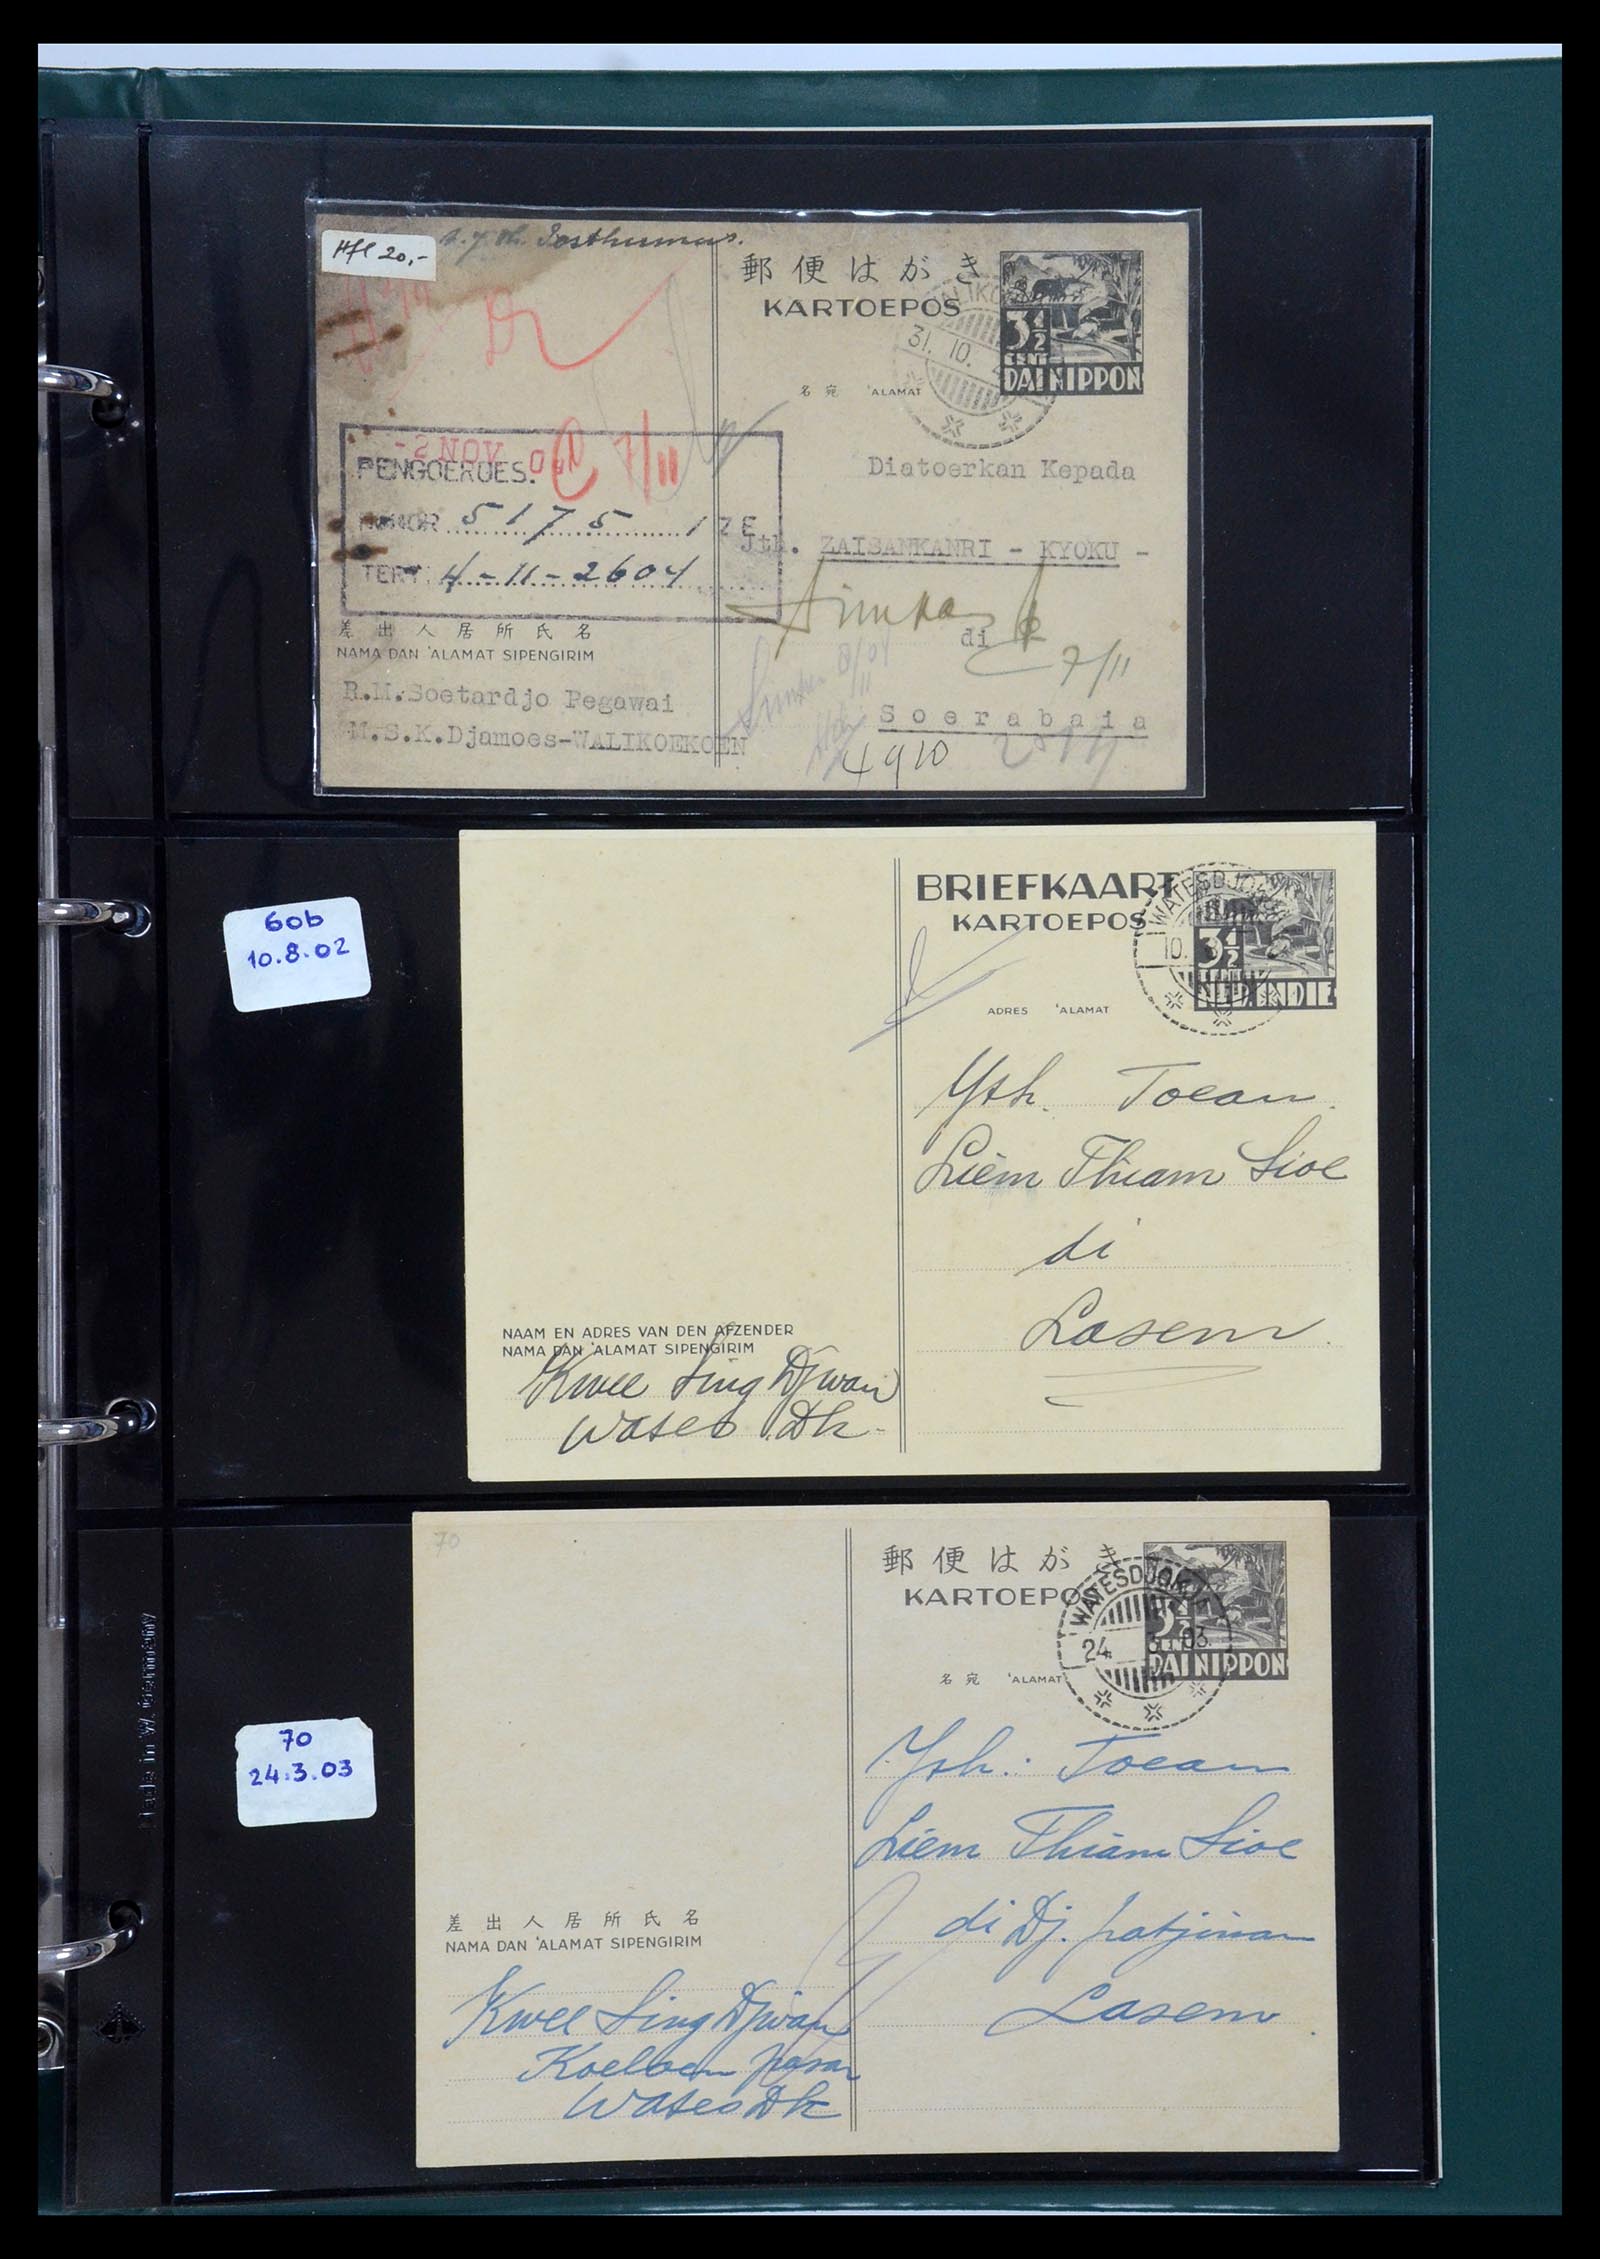 Hfl 20,-
Posthumus.
郵便はがき
KARTOEPOS
31. 10.
3½
CENT
DAI NIPPON
名宛 'ALAMAT
-2 NOV
7/11
PENGOEROES.
NOMOR 5175
TERT. 4-11-2604
Diatoerkan Kepada
Jth. ZAISANKANRI - KYOKU -
di
7/11
Soerabaia
4910
差出人居所氏名
NAMA DAN 'ALAMAT SIPENGIRIM
R.M.Soetardjo Pegawai
M.S.K.Djamoes-WALIKOEKOEN
60b
10.8.02
BRIEFKAART
KARTOEPOS
WATESDJOKJA
10.
3½
CENT
NED. INDIE
ADRES 'ALAMAT
Yth. Toean.
Liem Thiam Sioe
di
Lasem.
NAAM EN ADRES VAN DEN AFZENDER
NAMA DAN 'ALAMAT SIPENGIRIM
Kwee Sing Djwan
Wates Dk.
70
郵便はがき
KARTOEPOS
WATESDJOKJA
24. 3. 03.
3½
CENT
DAI NIPPON
名宛 'ALAMAT
70
24.3.03
Yth: Toean
Liem Thiam Sioe
di Dj. patjinan
Lasem.
差出人居所氏名
NAMA DAN 'ALAMAT SIPENGIRIM
Kwee Sing Djwan
Koelon pasar
Wates Dk
Made in W. Germany